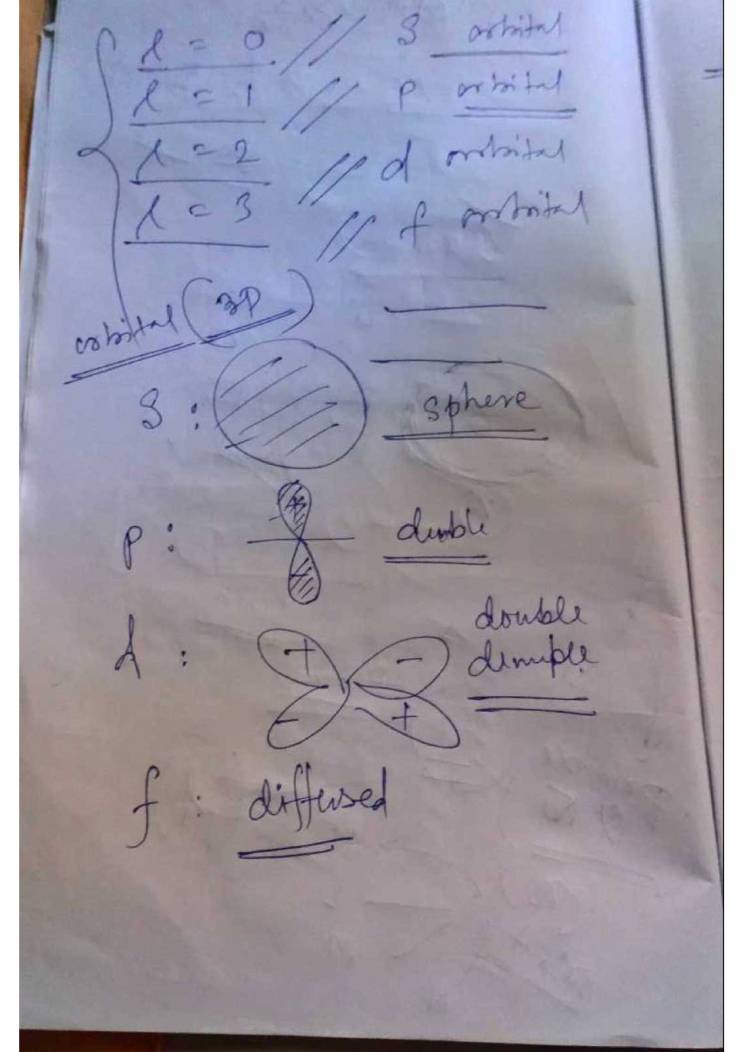 l = 0 // S orbital
l = 1 // p orbital
l = 2 // d orbital
l = 3 // f orbital
orbital (3D)
S : sphere
p : + - dumble
d : + - - + double
dumple
f : diffused